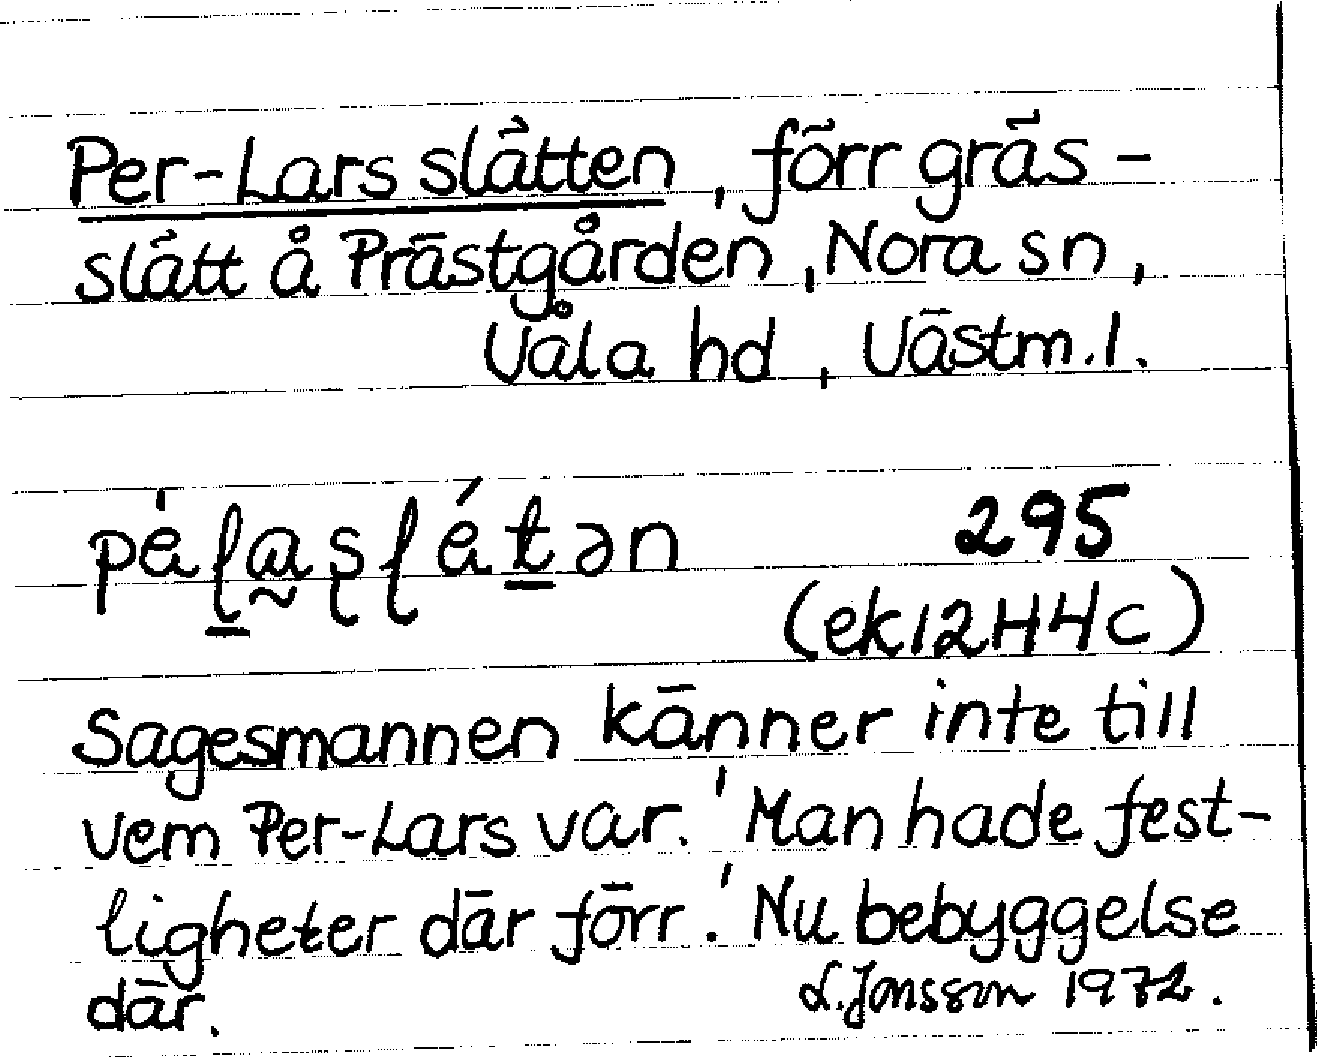 Per-Lars slåtten, förr gräs-
slått å Prästgården, Nora sn,
Våla hd, Västm.l.
295
(ek12H4c)
Sagesmannen känner inte till
vem Per-Lars var. 'Man hade fest-
ligheter där förr.' Nu bebyggelse
där.
L. Jonsson 1972.